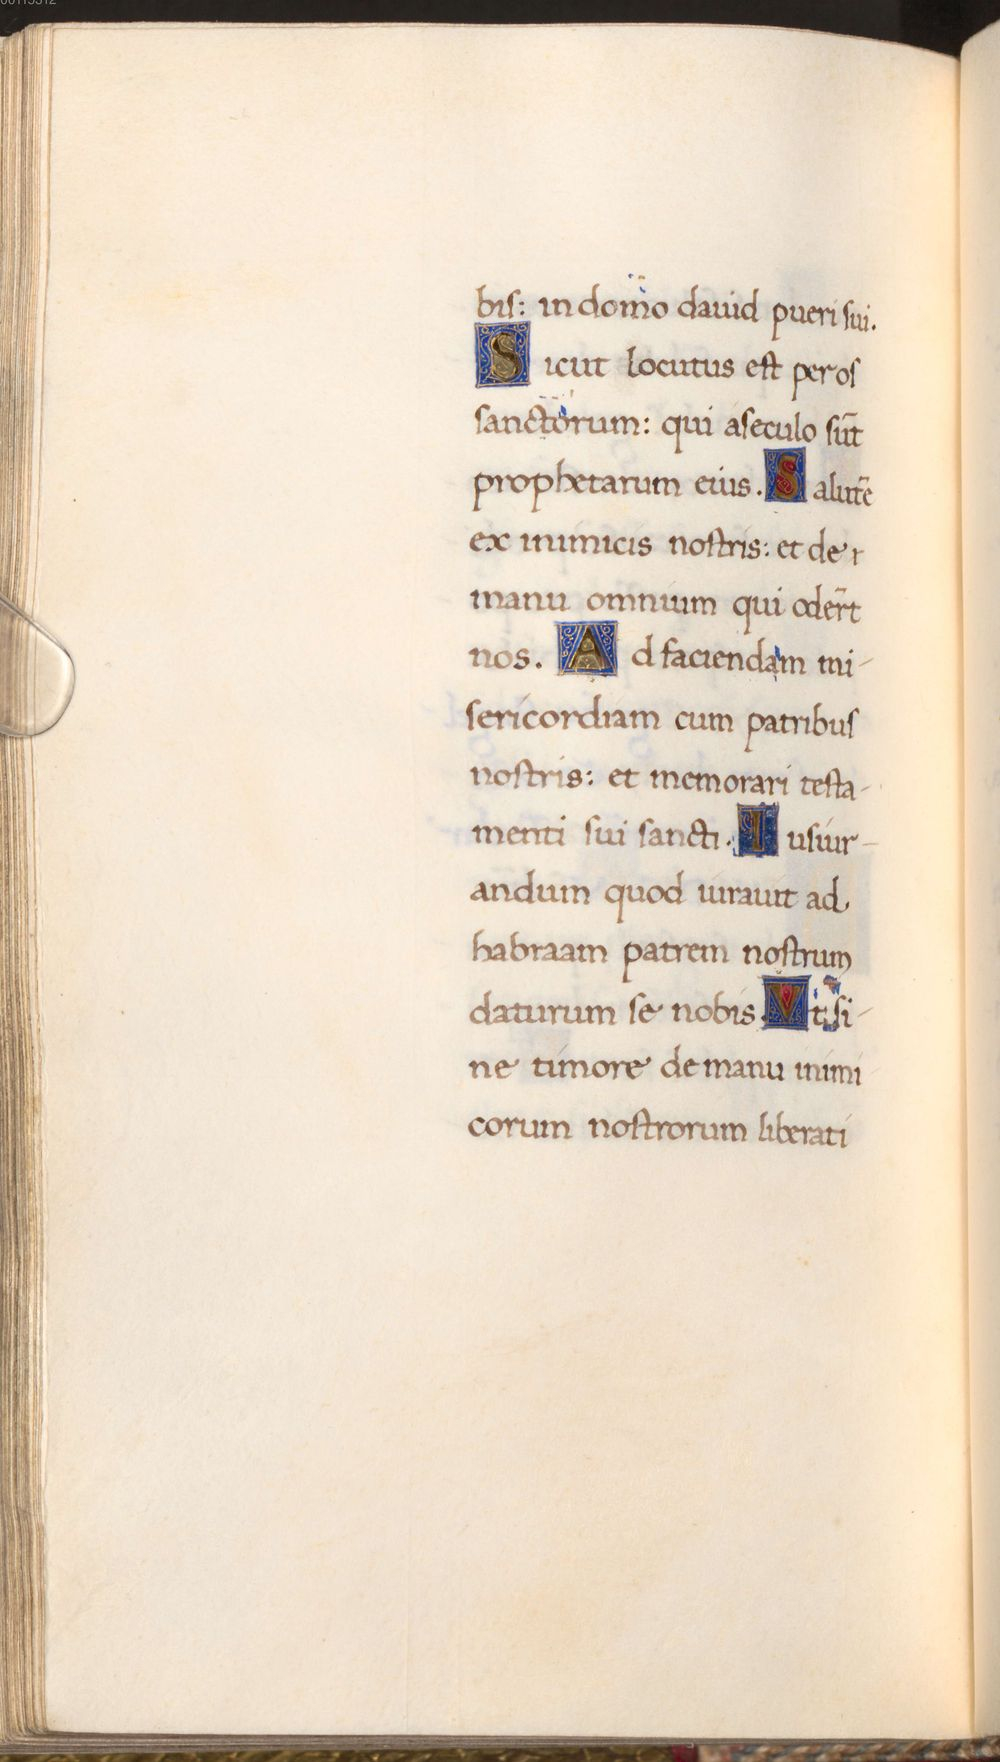 bis: in domo dauid pueri sui.
Sicut locutus est per os
sanctorum: qui aseculo sūt
prophetarum eius. Salutē
ex inimicis nostris: et de
manu omnium qui oder̄t
nos. Ad faciendam mi-
sericordiam cum patribus
nostris: et memorari testa-
menti sui sancti. Iusiur-
andum quod iurauit ad
habraam patrem nostrum
daturum se nobis. Vt si-
ne timore de manu inimi
corum nostrorum liberati